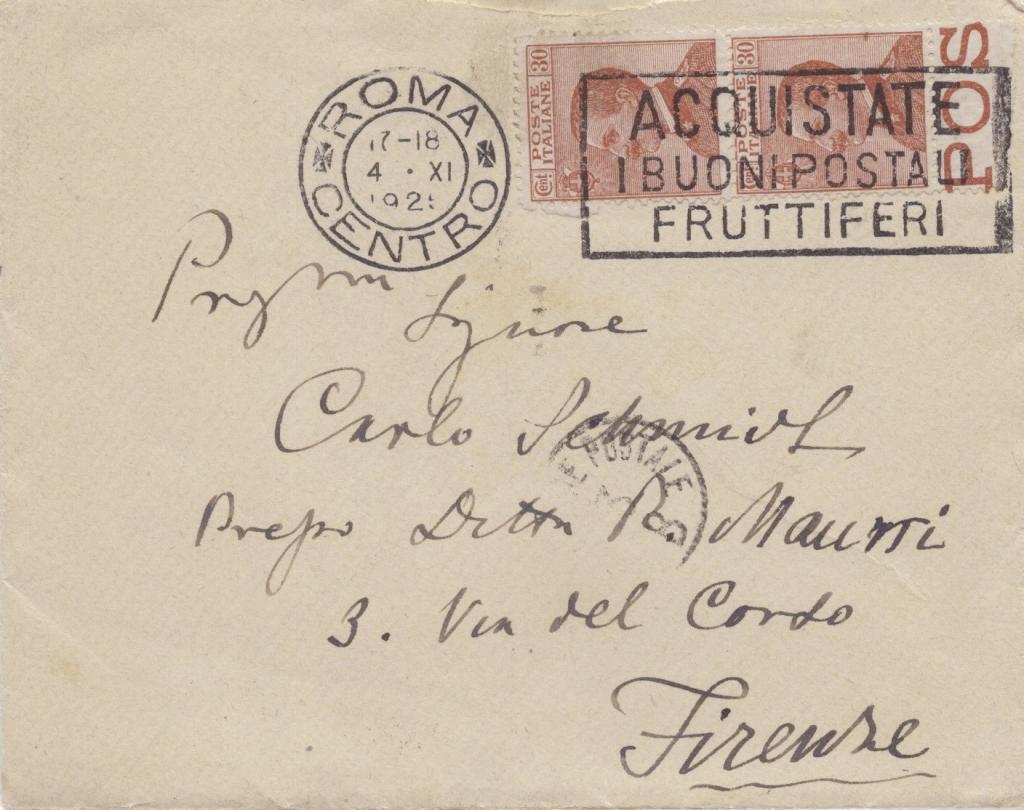 ROMA
17-18
4 · XI
1925
CENTRO
POSTE ITALIANE 30
Cent
POSTE ITALIANE 30
Cent
POS
ACQUISTATE
I BUONI POSTALI
FRUTTIFERI
Signore
Carlo Schmidt
Presso Ditta R. Maurri
E POSTALE
3. Via del Corso
Firenze